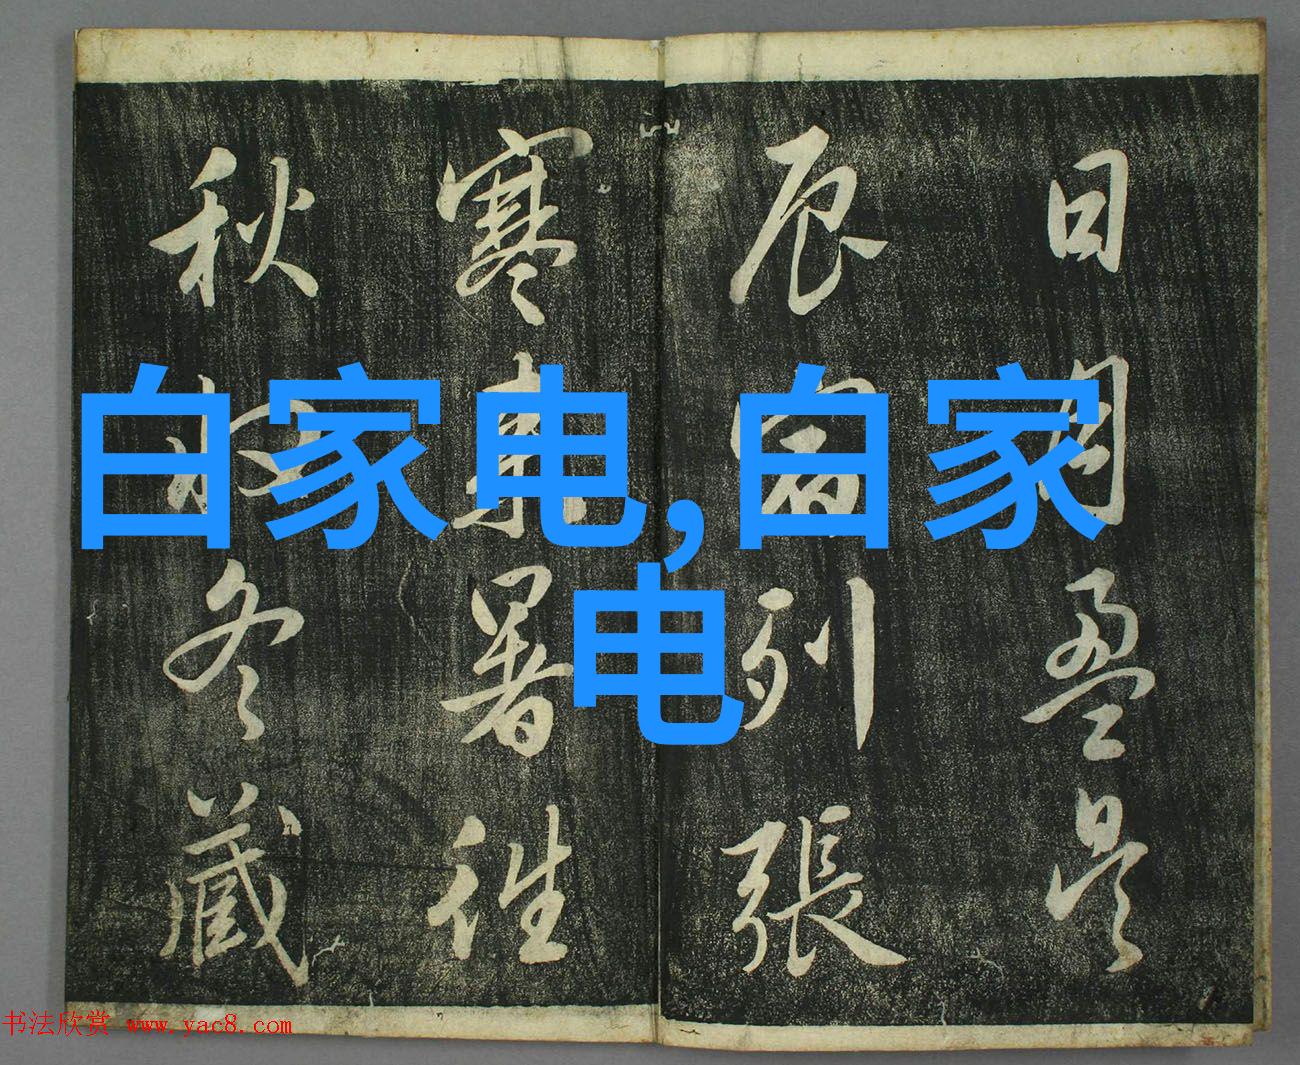 日月盈昃
辰宿列張
寒来暑往
秋收冬藏
白家电,白家
电
书法欣赏 www.yac8.com